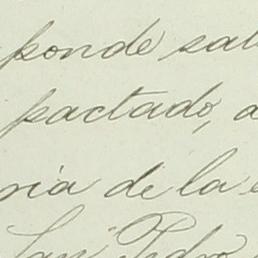 ponde sal
pactado, a
ria de la e
San Pedro